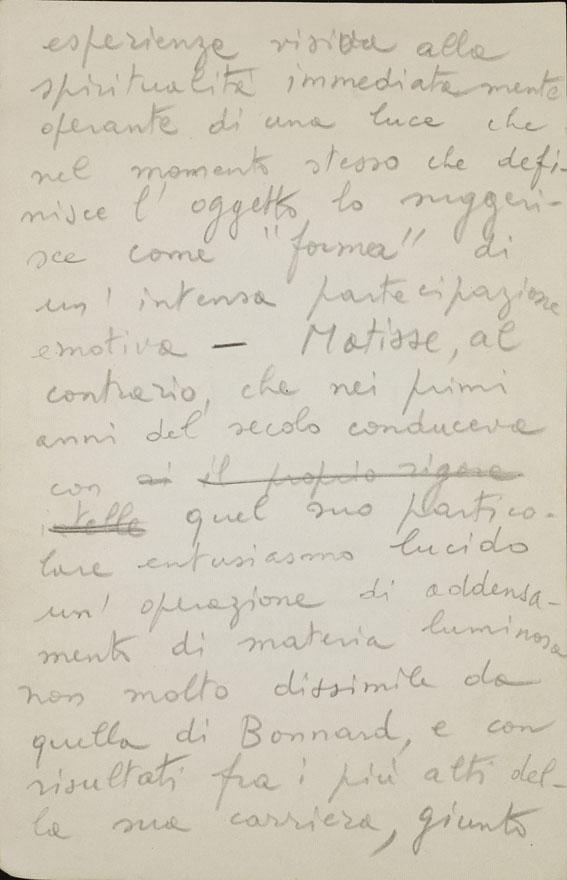 esperienza visiva alla
spiritualità immediatamente
operante di una luce che
nel momento stesso che defi-
nisce l'oggetto, lo suggeri-
sce come "forma" di
un'intensa partecipazione
emotiva — Matisse, al
contrario, che nei primi
anni del secolo conduceva
con si il proprio rigore
intelle quel suo partico-
lare entusiasmo lucido
un'operazione di addensa-
mento di materia luminosa
non molto dissimile da
quella di Bonnard, e con
risultati fra i più alti del-
la sua carriera, giunto